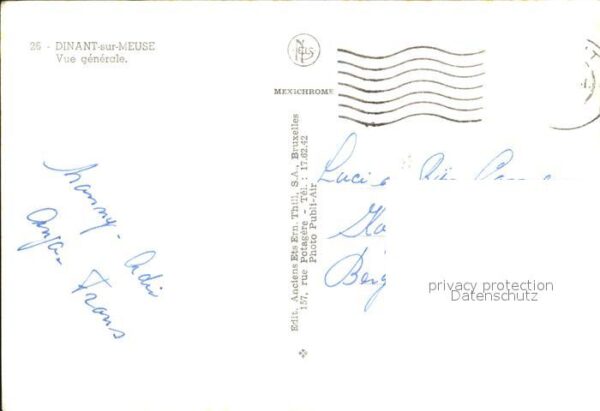 26 - DINANT-sur-MEUSE
Vue générale.
NELS
MEXICHROME
Edit. Anciens Ets Ern. Thill, S.A., Bruxelles
157, rue Potagère - Tél. : 17.62.42
Photo Publi-Air
Adi
Frans
Lucie
privacy protection
Datenschutz